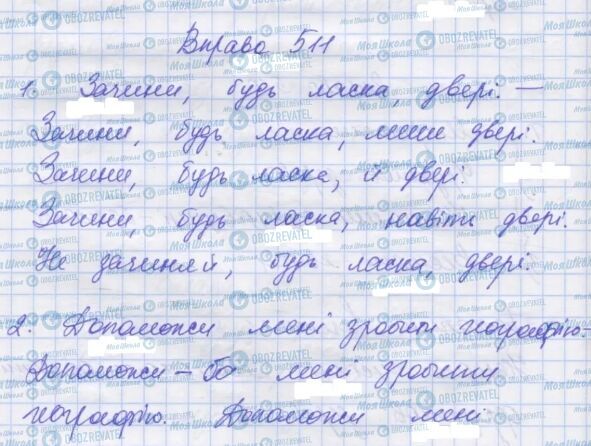 Вправа 511
1. Зачини, будь ласка, двері. —
Зачини, будь ласка, лише двері.
Зачини, будь ласка, й двері.
Зачини, будь ласка, навіть двері.
Не зачиняй, будь ласка, двері.
2. Допоможи мені зробити географію. -
Допоможи - бо мені зробити
географію. Допоможи мені